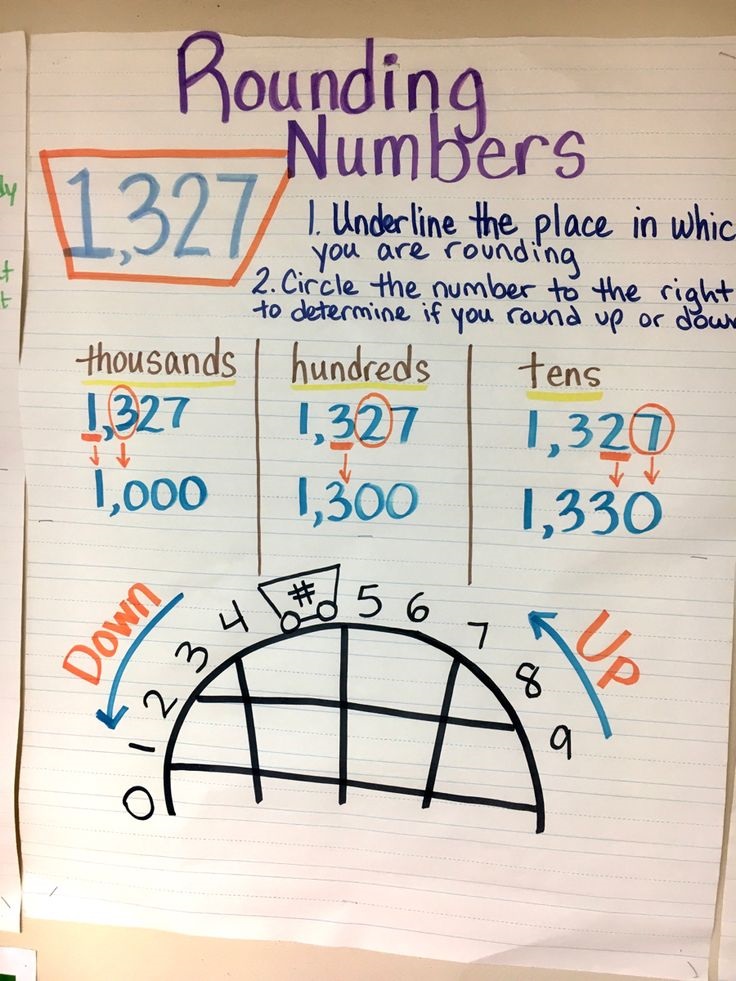 Rounding
Numbers
1,327
1. Underline the place in whic
you are rounding
2. Circle the number to the right
to determine if you round up or down
thousands hundreds tens
1,327 1,327 1,327
1,000 1,300 1,330
Down
Up
0 1 2 3 4 # 5 6 7 8 9